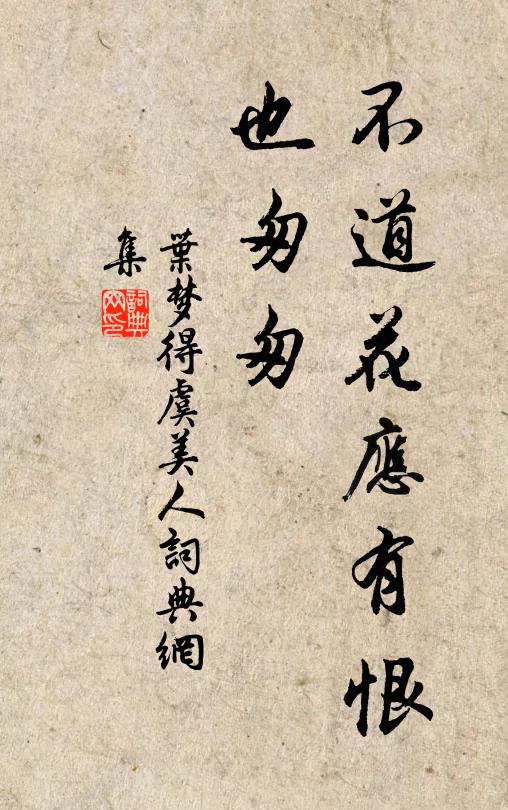 不道花應有恨
也匆匆
葉梦得虞美人詞典網
集
詞典
网印